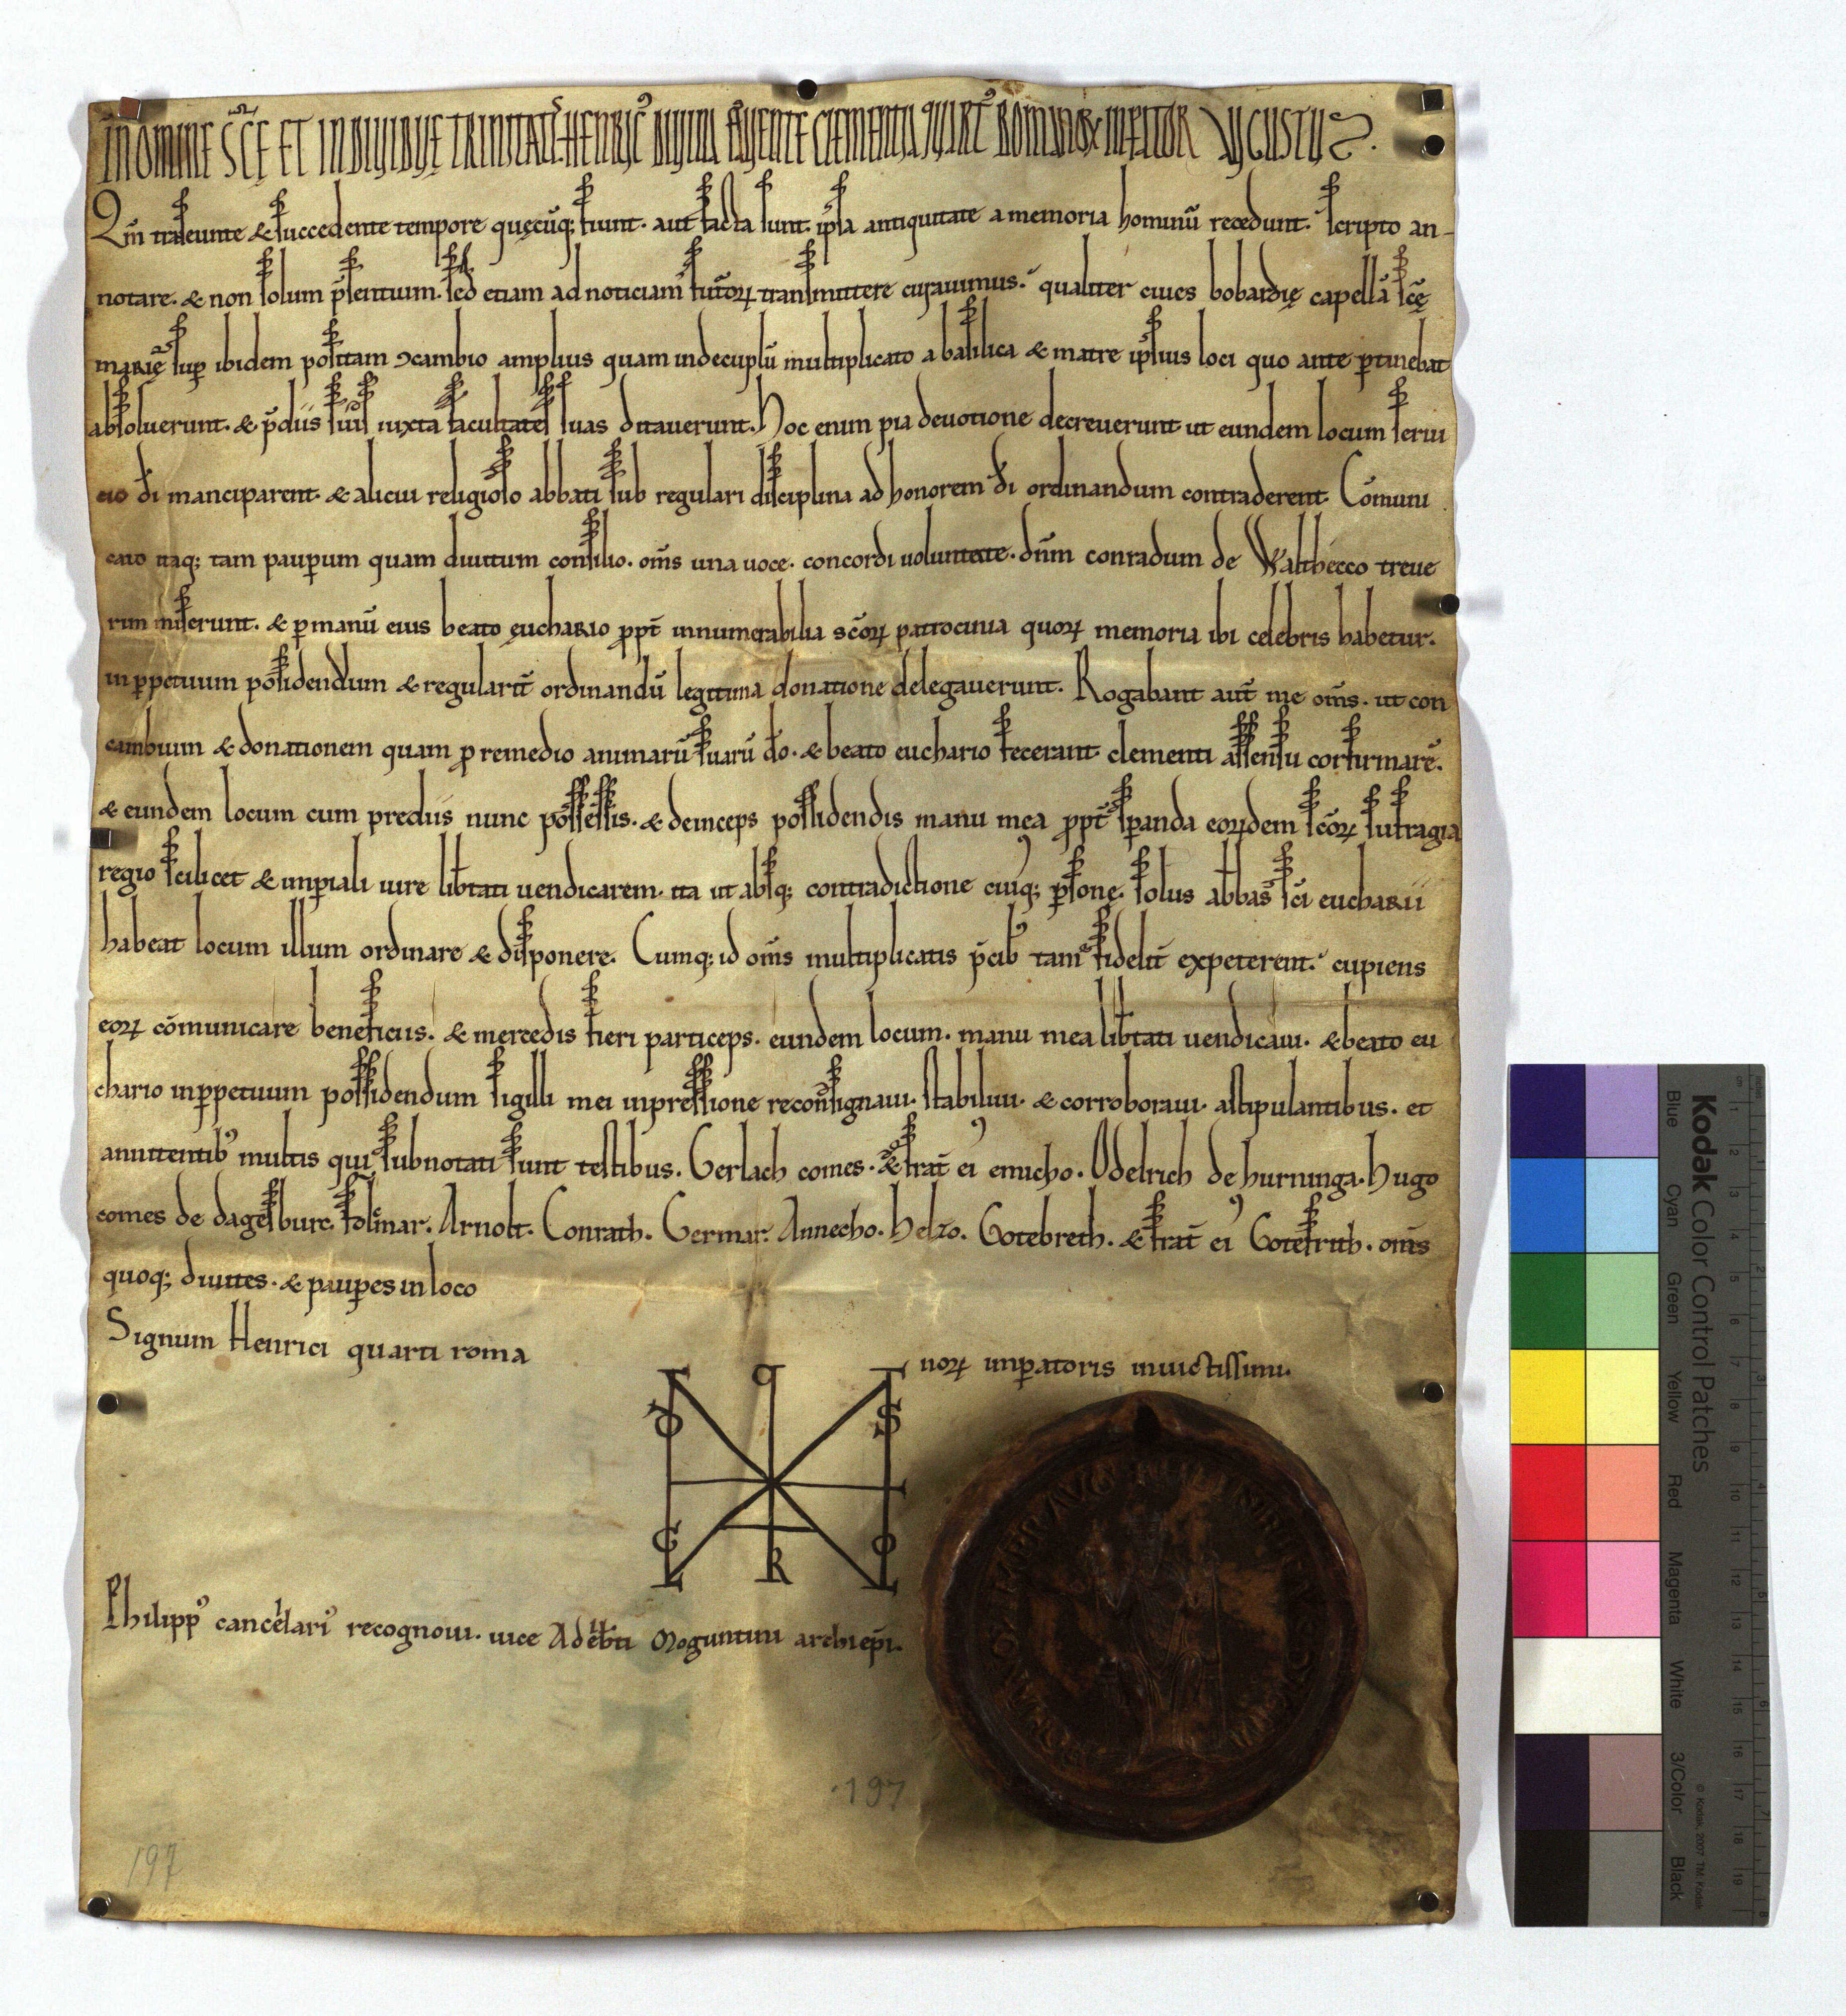 IN NOMINE SC̄Ę ET INDIVIDUĘ TRINITATIS HENRIC᾽ DIVINA FAVENTE CLEMENTIA QUART᾽ ROMANOꝜ INPERATOR AUGUSTUS.
Qm̄ transeunte & succedente tempore quęcūq; fiunt. aut facta sunt. ip̄sa antiquitate a memoria hominū recedunt. scripto an-
notare. & non solum p̄sentium. sed etiam ad noticiam futōrꝜ transmittere curauimus. qualiter ciues bobardię capellā sc̄ę
marię sup̄ ibidem positam ꝯcambio amplius quam indecuplū multiplicato a basilica & matre ip̄sius loci quo ante ꝑtinebat
absoluerunt. & p̄diis suis iuxta facultates suas ditauerunt. Hoc enim pia deuotione decreuerunt ut eundem locum serui
cio dī manciparent. & alicui religioso abbati sub regulari disciplina ad honorem dī ordinandum contraderent. Cōmuni
cato itaq; tam pauꝑum quam diuitum consilio. om̄s una uoce. concordi uoluntate. dn̄m conradum de Waltbecco treue
rim miserunt. & ꝑ manū eius beato ęuchario ꝓpt̄ innumerabilia sc̄oꝝ patrocinia quoꝝ memoria ibi celebris habetur.
inꝑpetuum possidendum & regularit̄ ordinandū legitima donatione delegauerunt. Rogabant aut̄ me om̄s. ut con
cambium & donationem quam ꝓ remedio animarū suarū dō. & beato euchario fecerant clementi assensu confirmarē.
& eundem locum cum prediis nunc possessis. & deinceps possidendis manu mea ꝓpt̄ sꝑanda eoꝝdem sc̄oꝝ sufragia
regio scilicet & inꝑiali iure lib̄tati uendicarem. ita ut absq; contradictione cuiq; ꝑsonę. solus abbas sc̄i eucharii
habeat locum illum ordinare & disponere. Cumq; id om̄s multiplicatis p̄cib᾽ tam fidelit̄ expeterent. cupiens
eoꝝ cōmunicare beneficiis. & mercedis fieri particeps. eundem locum. manu mea lib̄tati uendicaui. & beato eu
chario inꝑpetuum possidendum sigilli mei inpressione reconsignaui. stabiliui. & corroboraui. astipulantibus. et
annitentib᾽ multis qui subnotati sunt testibus. Gerlach comes. & frat̄ ei᾽ emicho. Odelrich de hurninga. Hugo
comes de dagesburc. folmar. Arnolt. Conrath. Germar. Annecho. Helzo. Gotebreth. & frat̄ ei᾽ Gotefrith. om̄s
quoq; diuites. & pauꝑes in loco
Signum Henrici quarti roma
noꝝ inꝑatoris inuictissimi.
Philipp᾽ cancellari᾽ recognoui. uice Adelb̄ti Moguntini archiep̄i.
·197
197
Kodak Color Control Patches
Blue Cyan Green Yellow Red Magenta White 3/Color Black
© Kodak, 2007 TM: Kodak